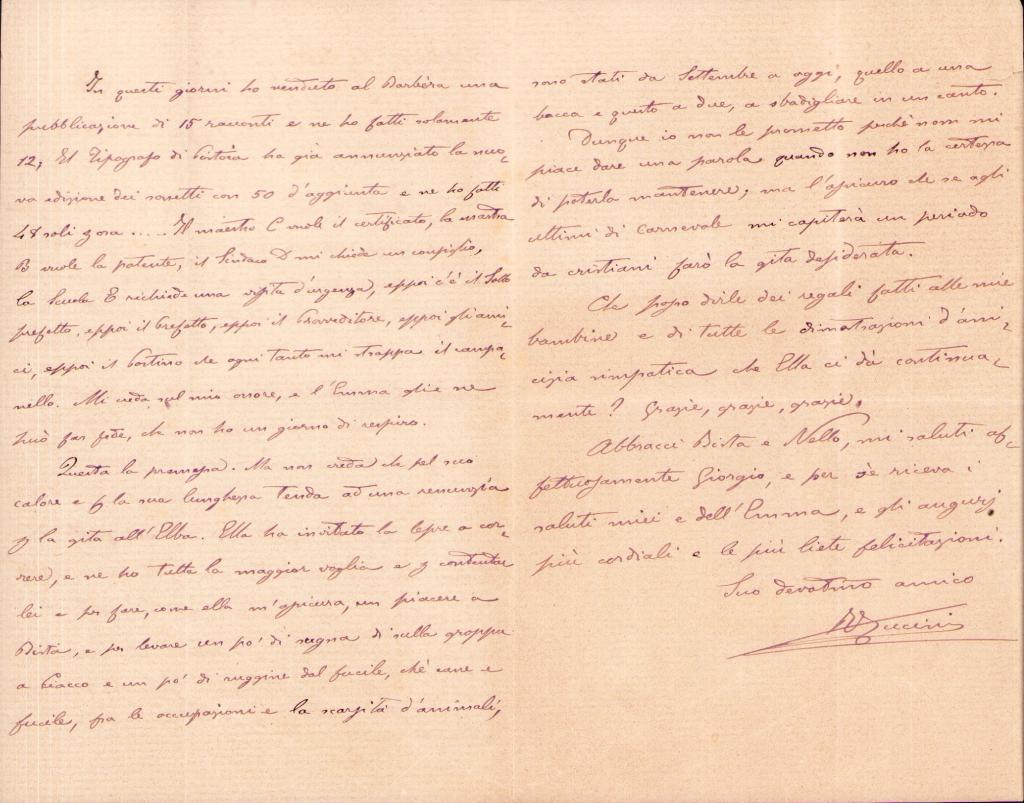 In questi giorni ho venduto al Barbèra una
pubblicazione di 15 racconti e ne ho fatti solamente
12; Il Tipografo di Pistoia ha già annunziato la nuo-
va edizione dei sonetti con 50 d'aggiunta e ne ho fatti
48 soli
Il maestro C vuole il certificato, la maestra
B vuole la patente, il Sindaco D mi chiede un consiglio,
la Scuola E richiede una visita d'urgenza, eppoi c'è il Sotto
prefetto, eppoi il Prefetto, eppoi il Provveditore, eppoi gli ami-
ci, eppoi il Postino che ogni tanto mi strappa il campa-
nello. Mi creda sul mio onore, e l'Emma gliene
può far fede, che non ho un giorno di respiro.
Questa la premessa. Ma non creda che pel suo
calore e p la sua lunghezza tenda ad una renunzia
p la gita all'Elba. Ella ha invitato la lepre a cor-
rere, e ne ho tutta la maggior voglia e p contentar
lei e per fare, come ella m'assicura, un piacere a
Bista, e per levare un po' di sugna di sulla groppa
a Giacco e un po' di ruggine dal fucile, chè cane e
fucile, fra le occupazioni e la scarsità d'animali,
sono stati da Settembre a oggi, quello a una
bocca e questo a due, a sbadigliare in un canto.
Dunque io non le prometto perchè non mi
piace dare una parola quando non ho la certezza
di poterla mantenere; ma l'assicuro che se agli
ultimi di Carnevale mi capiterà un periodo
da cristiani farò la gita desiderata.
Che posso dirle dei regali fatti alle mie
bambine e di tutte le dimostrazioni d'ami-
cizia simpatica che Ella ci dà continua-
mente? Grazie, grazie, grazie.
Abbracci Bista e Nello, mi saluti af-
fettuosamente Giorgio, e per sè riceva i
saluti miei e dell'Emma, e gli augurj
più cordiali e le più liete felicitazioni.
Suo devotmo amico
RFucini